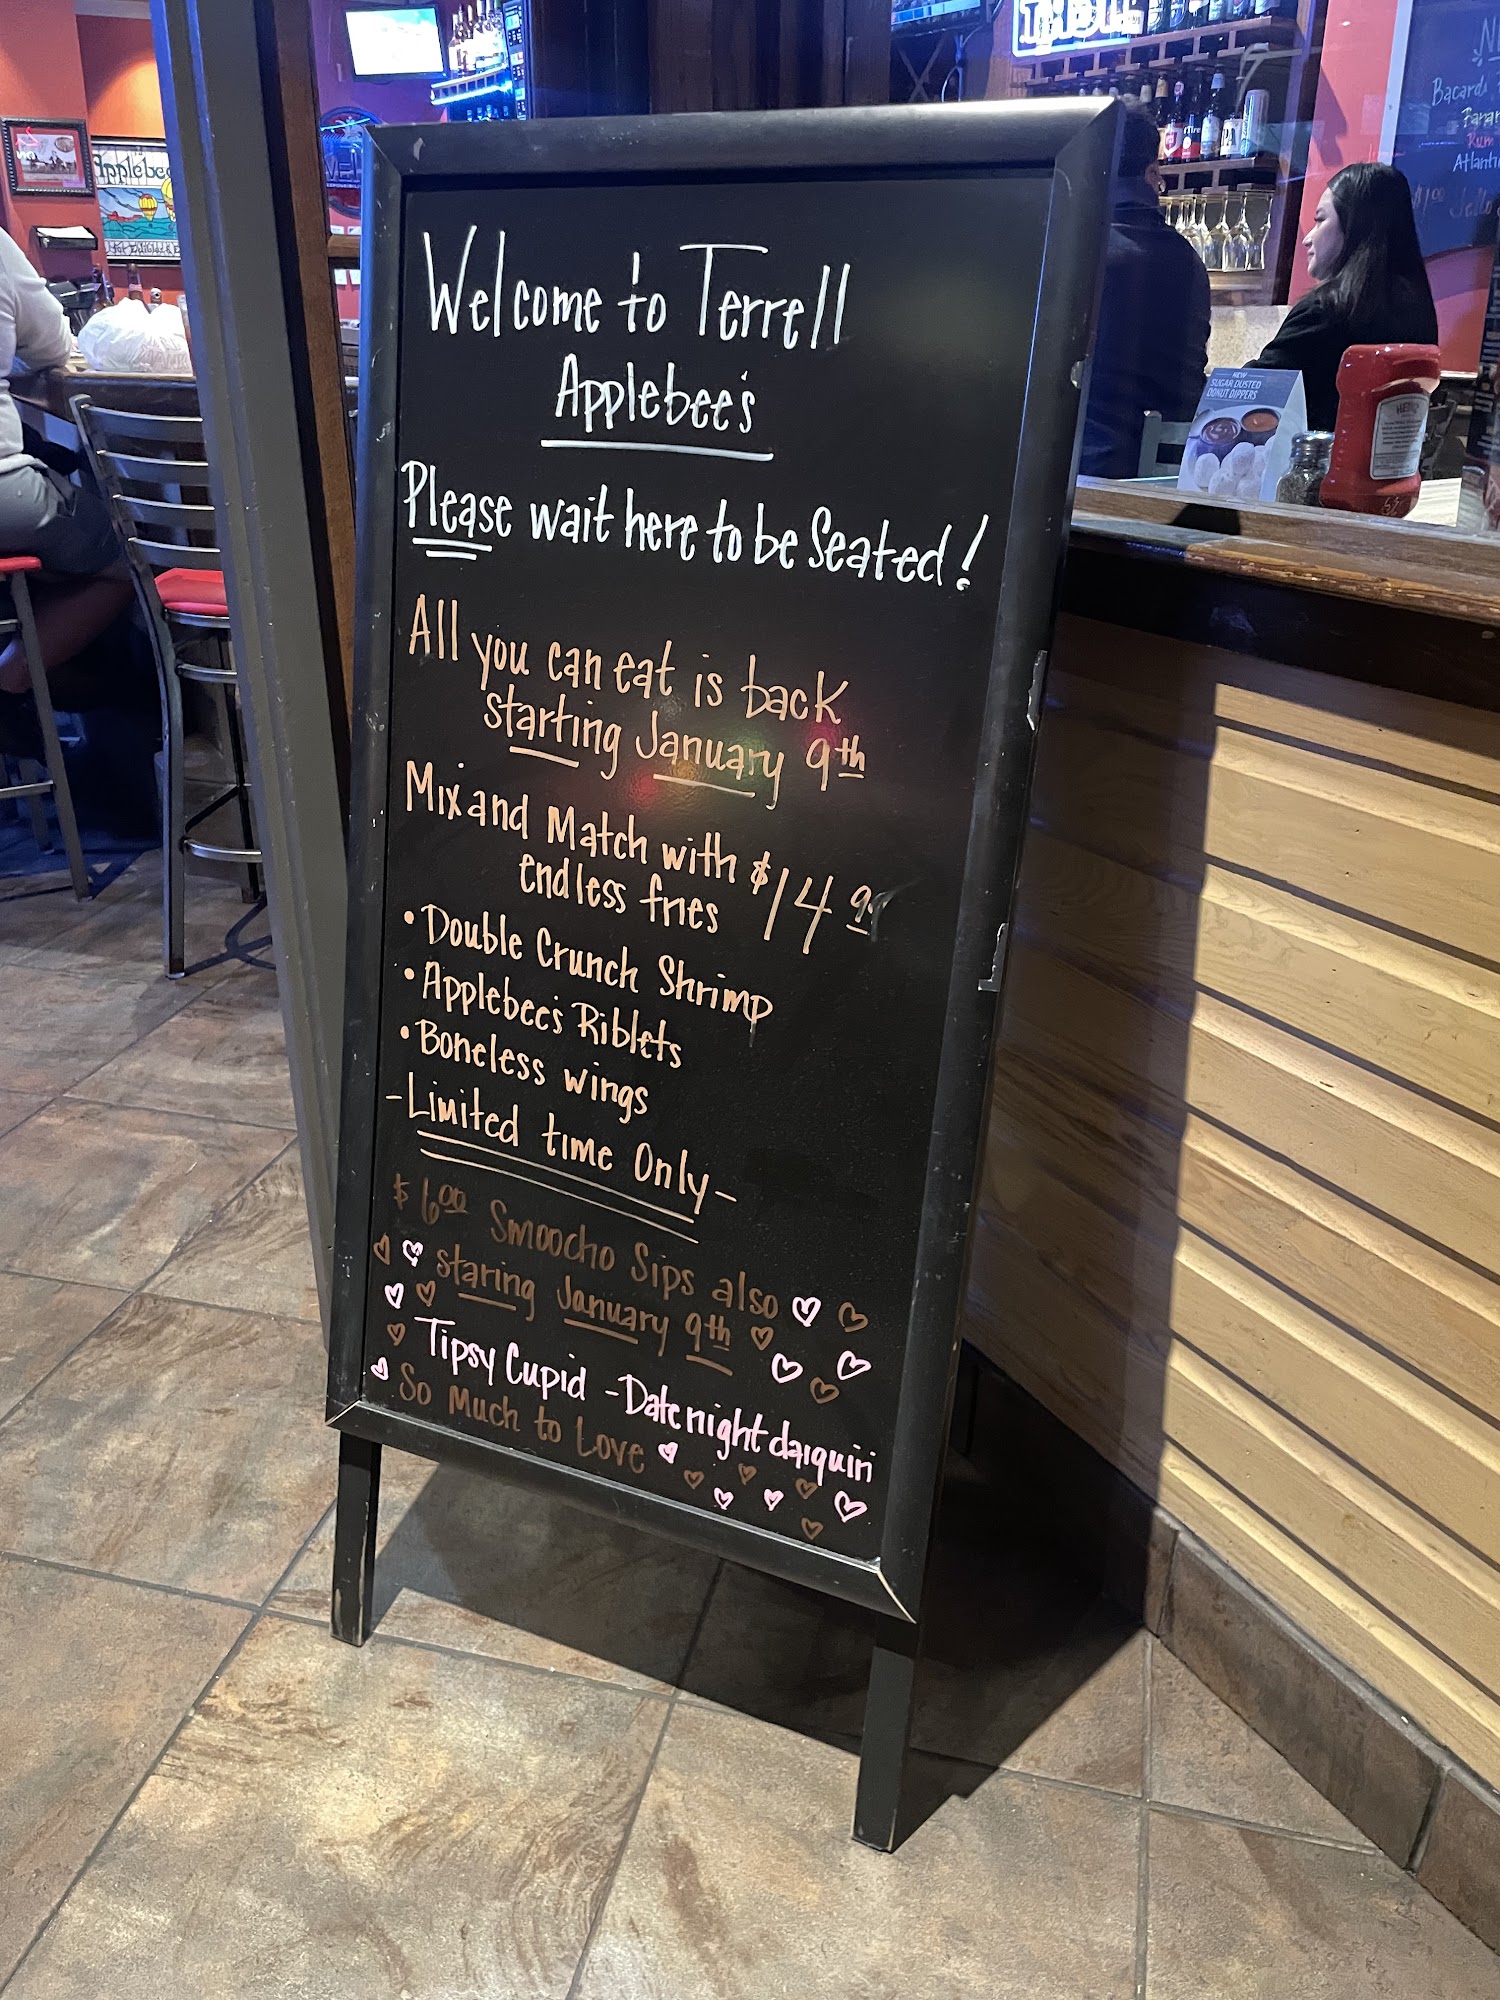 Welcome to Terrell
Applebee's
Please wait here to be Seated!
All you can eat is back
starting January 9th
Mix and Match with $14.99
endless fries
• Double Crunch Shrimp
• Applebee's Riblets
• Boneless wings
-Limited time Only-
$6.00 Smoocho Sips also
staring January 9th
Tipsy Cupid - Date night daiquiri
So Much to Love
Applebee
NEW
SUGAR DUSTED
DONUT DIPPERS
HEINZ
Bacardi
Rum
$1.00 Jello